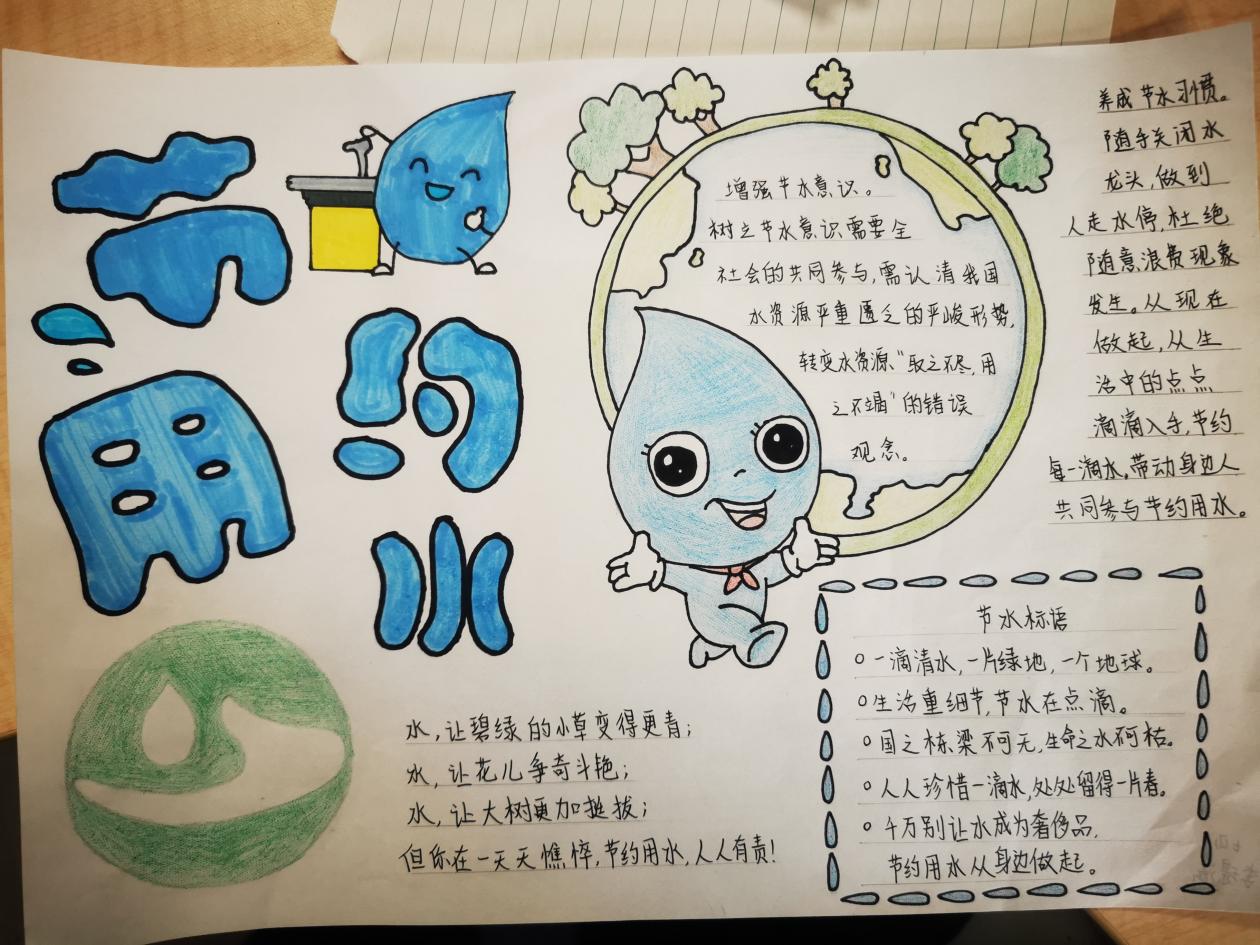 节约用水
增强节水意识。
树立节水意识需要全
社会的共同参与,需认清我国
水资源严重匮乏的严峻形势,
转变水资源“取之不尽,用
之不竭”的错误
观念。
养成节水习惯。
随手关闭水
龙头,做到
人走水停,杜绝
随意浪费现象
发生。从现在
做起,从生
活中的点点
滴滴入手,节约
每一滴水,带动身边人
共同参与节约用水。
水,让碧绿的小草变得更青;
水,让花儿争奇斗艳;
水,让大树更加挺拔;
但你在一天天憔悴,节约用水,人人有责!
节水标语
一滴清水,一片绿地,一个地球。
生活重细节,节水在点滴。
国之栋梁不可无,生命之水不可枯。
人人珍惜一滴水,处处留得一片春。
千万别让水成为奢侈品,
节约用水从身边做起。